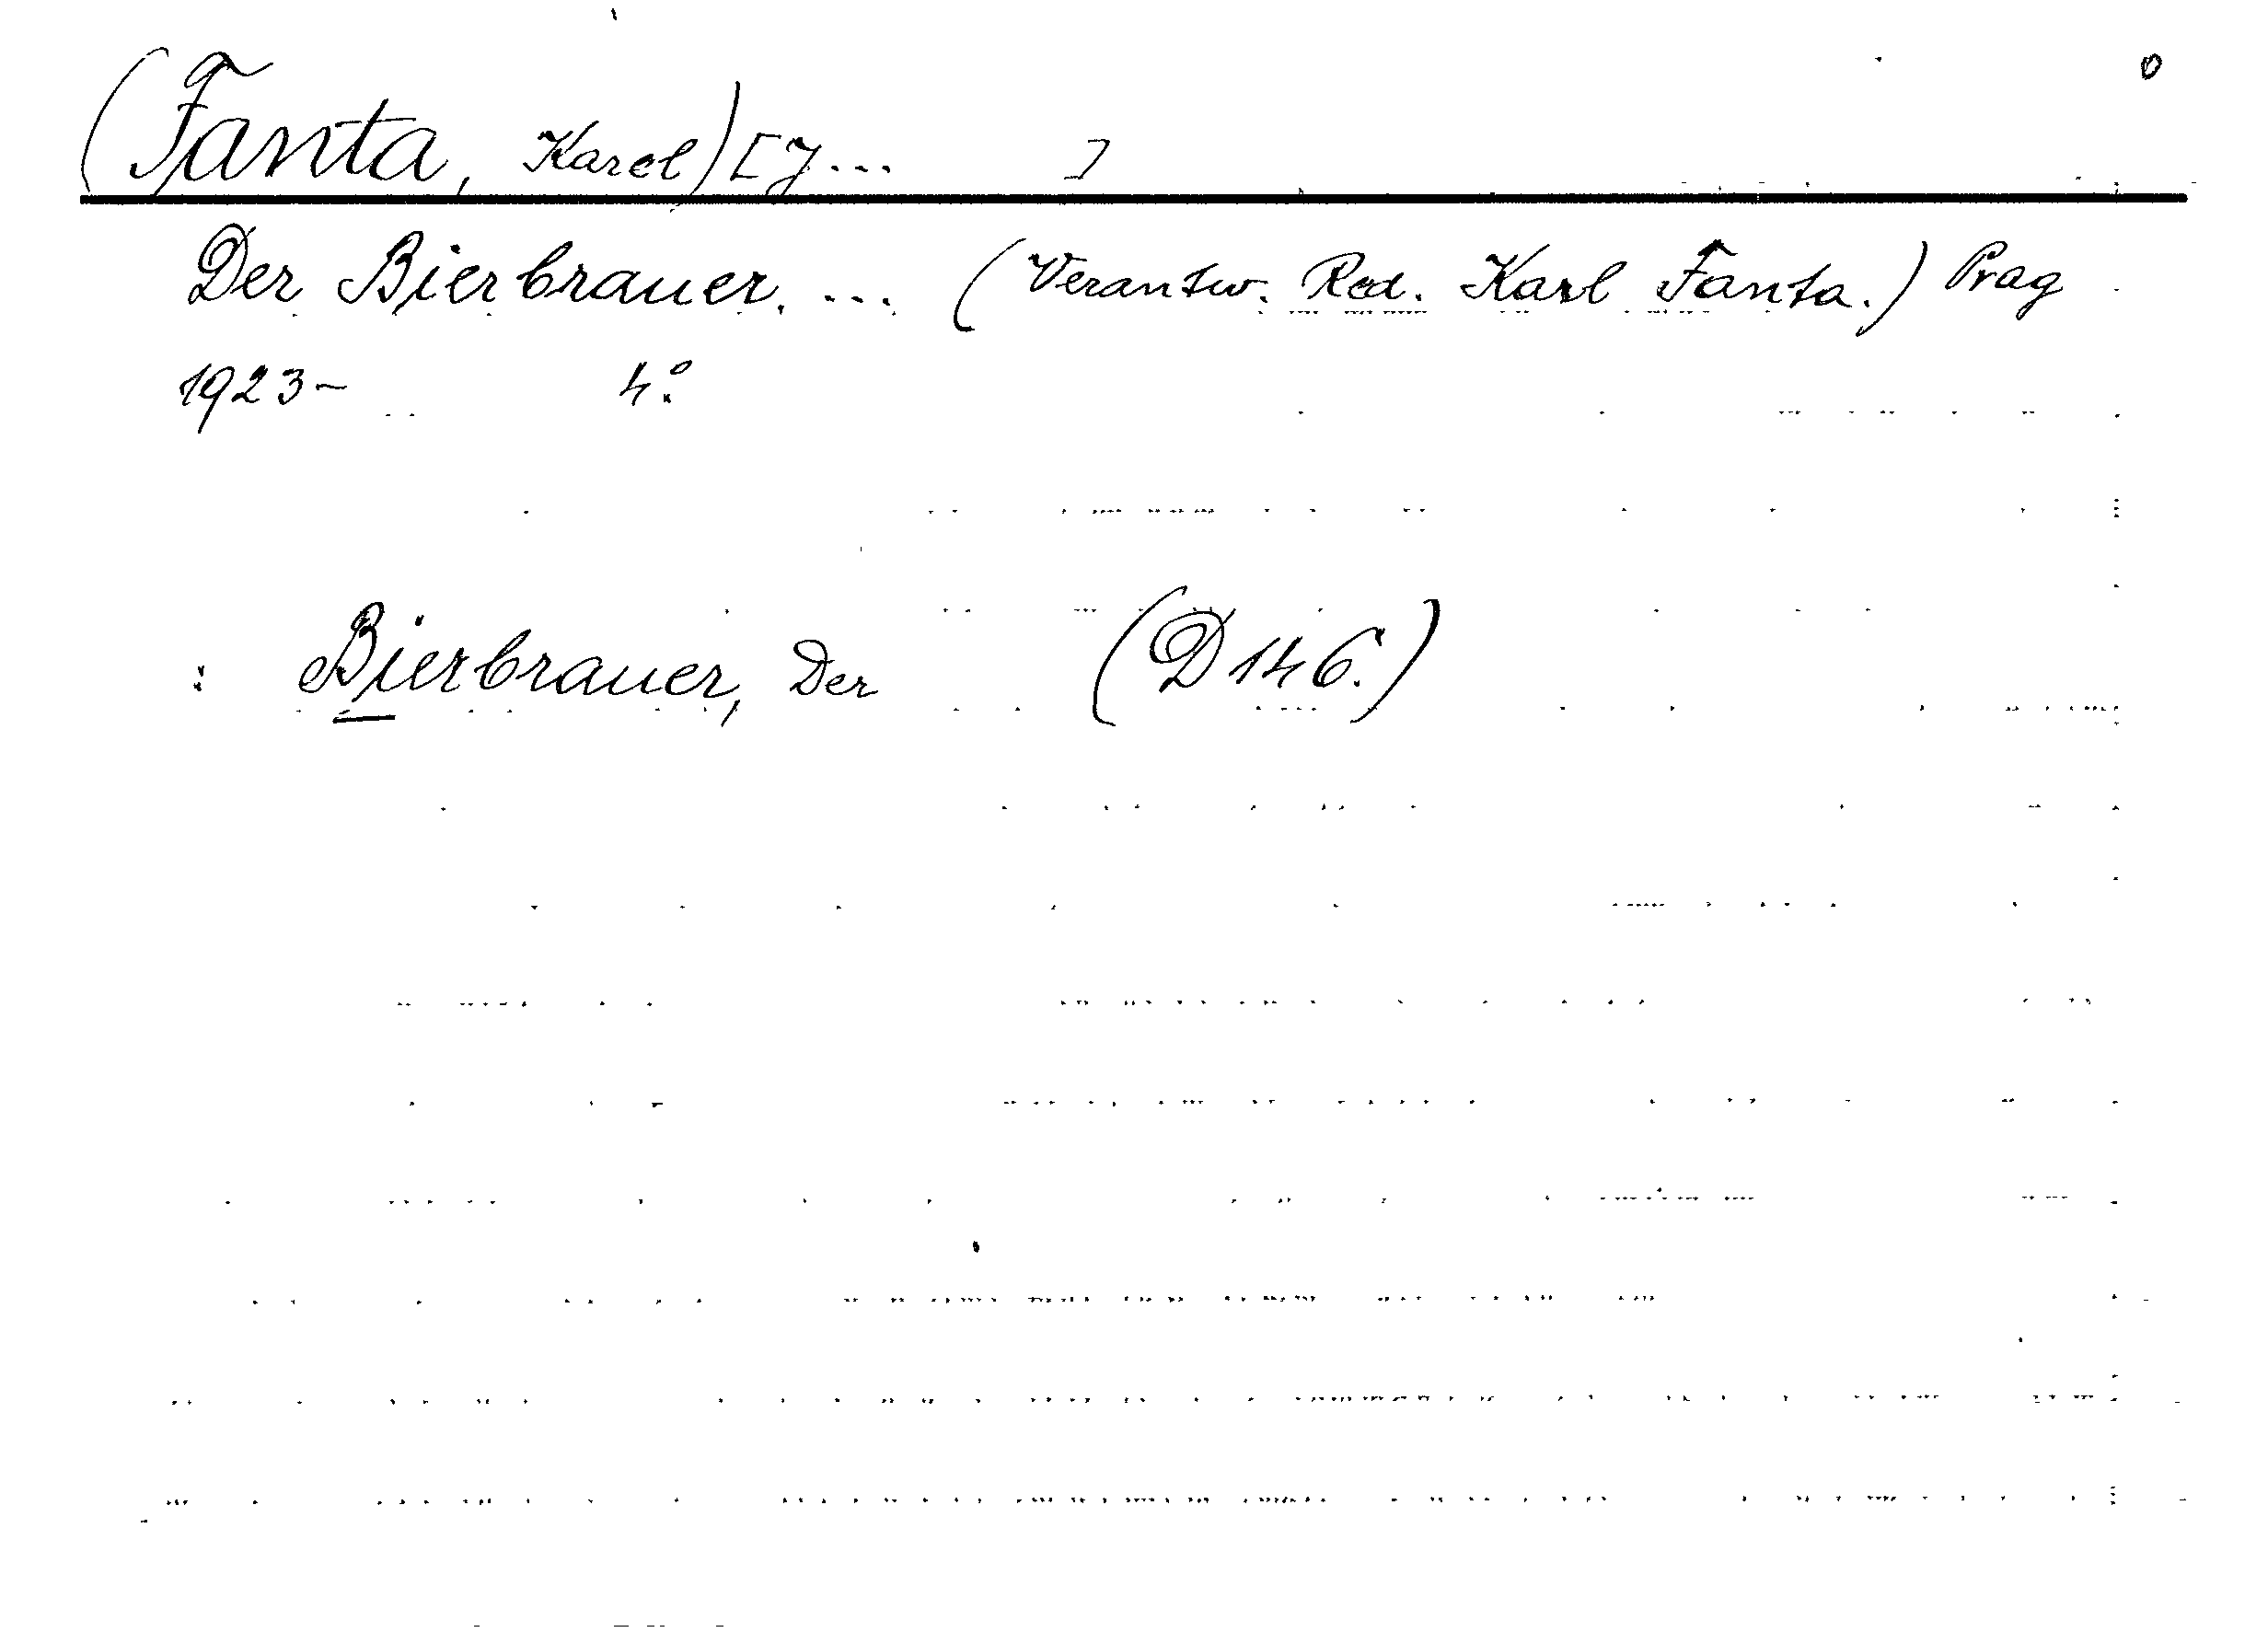 (Fanta, Karel) [J... ] 0
Der Bierbrauer. ... (Verantw. Red. Karl Fanta.) Prag
1923- 4°.
: Bierbrauer, Der (D 146.)